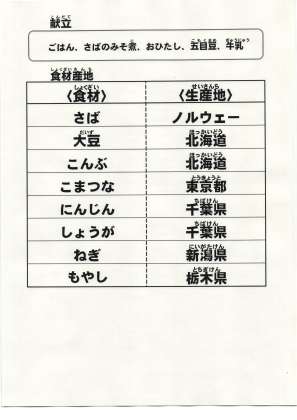 献立
ごはん、さばのみそ煮、おひたし、五目豆、牛乳
食材産地
〈食材〉 〈生産地〉
さば ノルウェー
大豆 北海道
こんぶ 北海道
こまつな 東京都
にんじん 千葉県
しょうが 千葉県
ねぎ 新潟県
もやし 栃木県